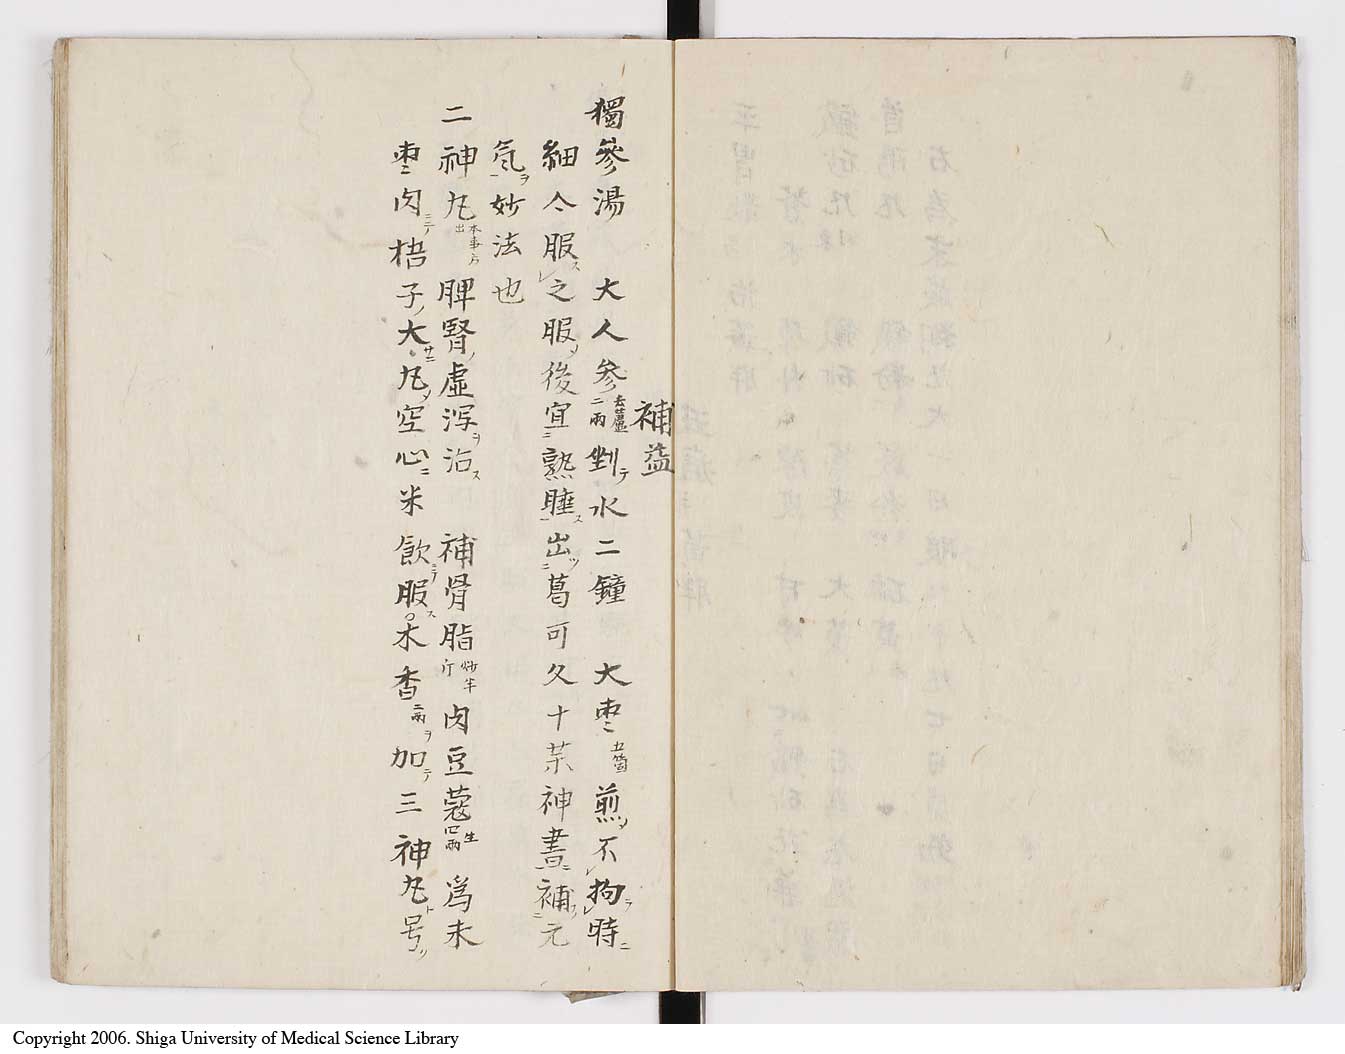 補益
獨參湯 大人參二兩去蘆剉テ水二鐘 大枣五箇煎〆不拘ラ時ニ
細〻服ス之服〆後宜熟睡ス出ツ葛可久十茱神書ニ補元
気ヲ妙法也
二神丸本事方出 脾腎ノ虚瀉ヲ治ス 補骨脂炒半斤肉豆蔻生四兩 為末
枣肉ニテ梧子ノ大サニ丸〆空心ニ米飲ニテ服ス○木香二兩ヲ加テ三神丸ト号ツ
Copyright 2006. Shiga University of Medical Science Library